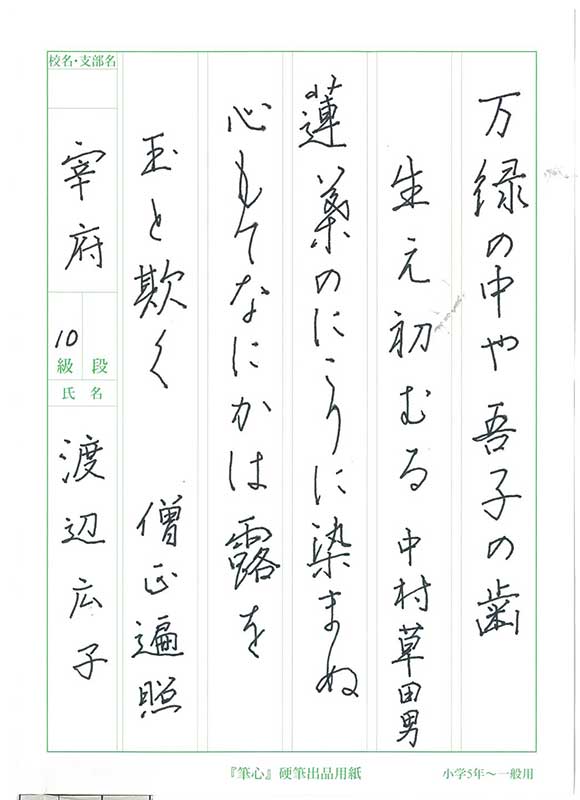 万緑の中や吾子の歯
生え初むる 中村草田男
蓮葉のにごりに染まぬ
心もてなにかは露を
玉と欺く 僧正遍照
校名・支部名
宰府
10
級 段
氏 名
渡辺広子
『筆心』硬筆出品用紙 小学5年〜一般用